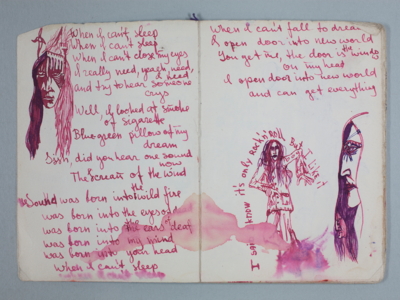 When I can't sleep
When I can't sleep
When I can't close my eyes
I really need, yeach need,
I need
and try to hear someone
crys
Well, I looked at smoke
of sigarette
Blue-green pillow of my
dream
Ssss, did you hear one sound
now
The Scream of the wind
the
Sound was born into wild fire
was born into the
was born into the ears' deat
was born into my mind
was born into your head
When I can't sleep
When I can't fall to dream
I open door into new world
You get me, the door is the window
on my head
I open door into new world
and can get everything
I know it's only Rock'n'Roll but I like it